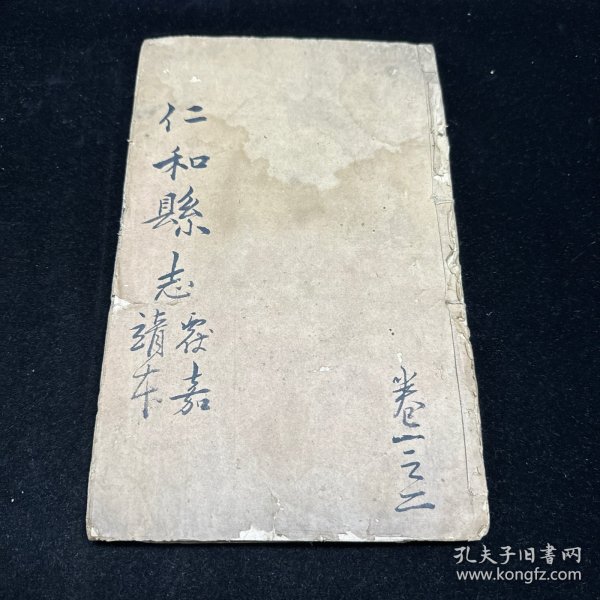 仁和縣志
覆嘉
靖本
卷一之二
孔夫子旧書网
www.kongfz.com